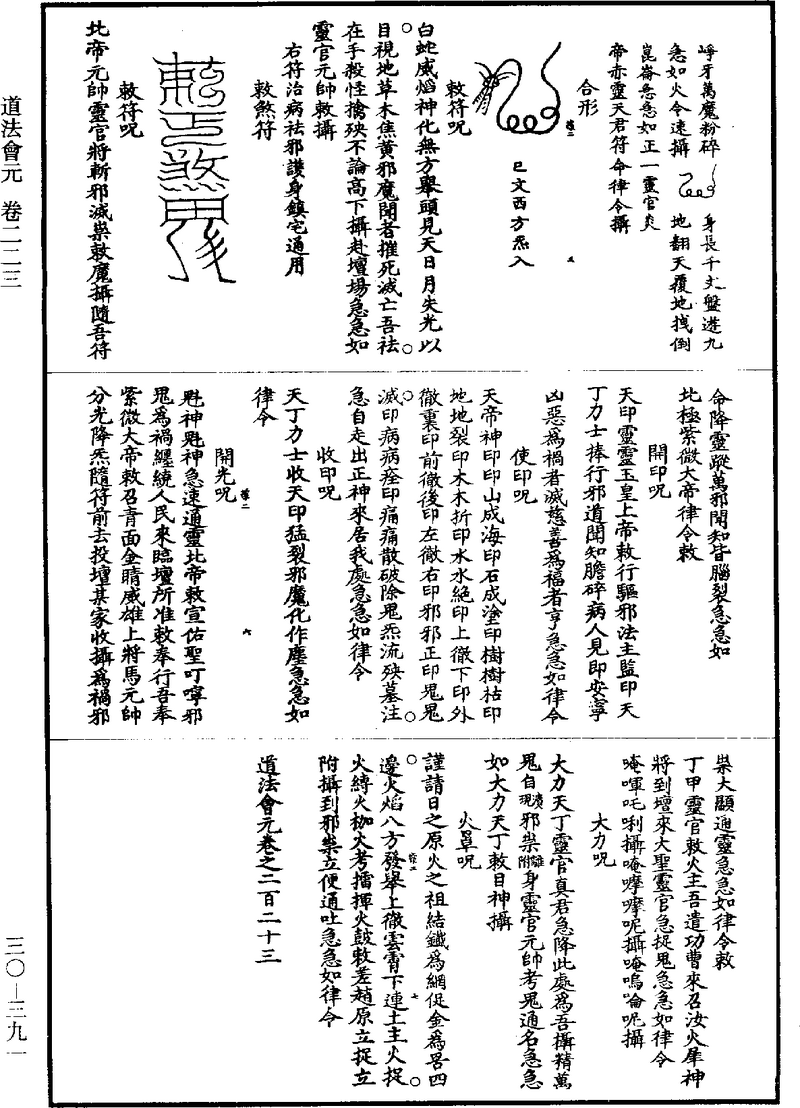 道法會元 卷二二三
崢牙萬魔粉碎 身長千丈盤遶九
急如火令速攝 地翻天覆地拽倒
崑崙急急如正一靈官炎
帝赤靈天君符命律令攝
合形
巳文西方炁入
敕符呪
白蛇威焰神化無方舉頭見天日月失光以
目視地草木焦黃邪魔聞者摧死滅亡吾祛
在手殺怪擒殃不論高下攝赴壇場急急如
靈官元帥敕攝
右符治病祛邪護身鎮宅通用
敕煞符
敕符呪
北帝元帥靈官將斬邪滅祟敕魔攝隨吾符
命降靈蹤萬邪聞知皆腦裂急急如
北極紫微大帝律令敕
開印呪
天印靈靈玉皇上帝敕行驅邪法主監印天
丁力士捧行邪道聞知膽碎病人見即安寧
凶惡爲禍者滅慈善爲福者亨急急如律令
使印呪
天帝神印印山成海印石成塗印樹樹枯印
地地裂印木木折印水水絕印上徹下印外
徹裏印前徹後印左徹右印邪邪正印鬼鬼
滅印病病痊印痛痛散破除鬼炁流殃墓注
急自走出正神來居我處急急如律令
收印呪
天丁力士收天印猛裂邪魔化作塵急急如
律令
開光呪
魁神魁神急速通靈北帝敕宣佑聖叮嚀邪
鬼爲禍纏繞人民來臨壇所准敕奉行吾奉
紫微大帝敕召青面金睛威雄上將馬元帥
分光降炁隨符前去投壇某家收攝爲禍邪
祟大顯通靈急急如律令敕
丁甲靈官敕火主吾遣功曹來召汝火犀神
將到壇來大聖靈官急捉鬼急急如律令
唵㖶吒唎攝唵嘮摩呢攝唵嗚噙呢攝
大力呪
大力天丁靈官真君急降此處爲吾攝精萬
鬼自現邪祟附身靈官元帥考鬼通名急急
如大力天丁敕日神攝
火罩呪
謹請日之原火之祖結鐵爲網促金爲罟四
邊火焰八方發舉上徹雲霄下連土主火捉
火縛火枷火考擂揮火鼓敕差趙原立捉立
附攝到邪祟立便通吐急急如律令
道法會元卷之二百二十三
三〇—三九一